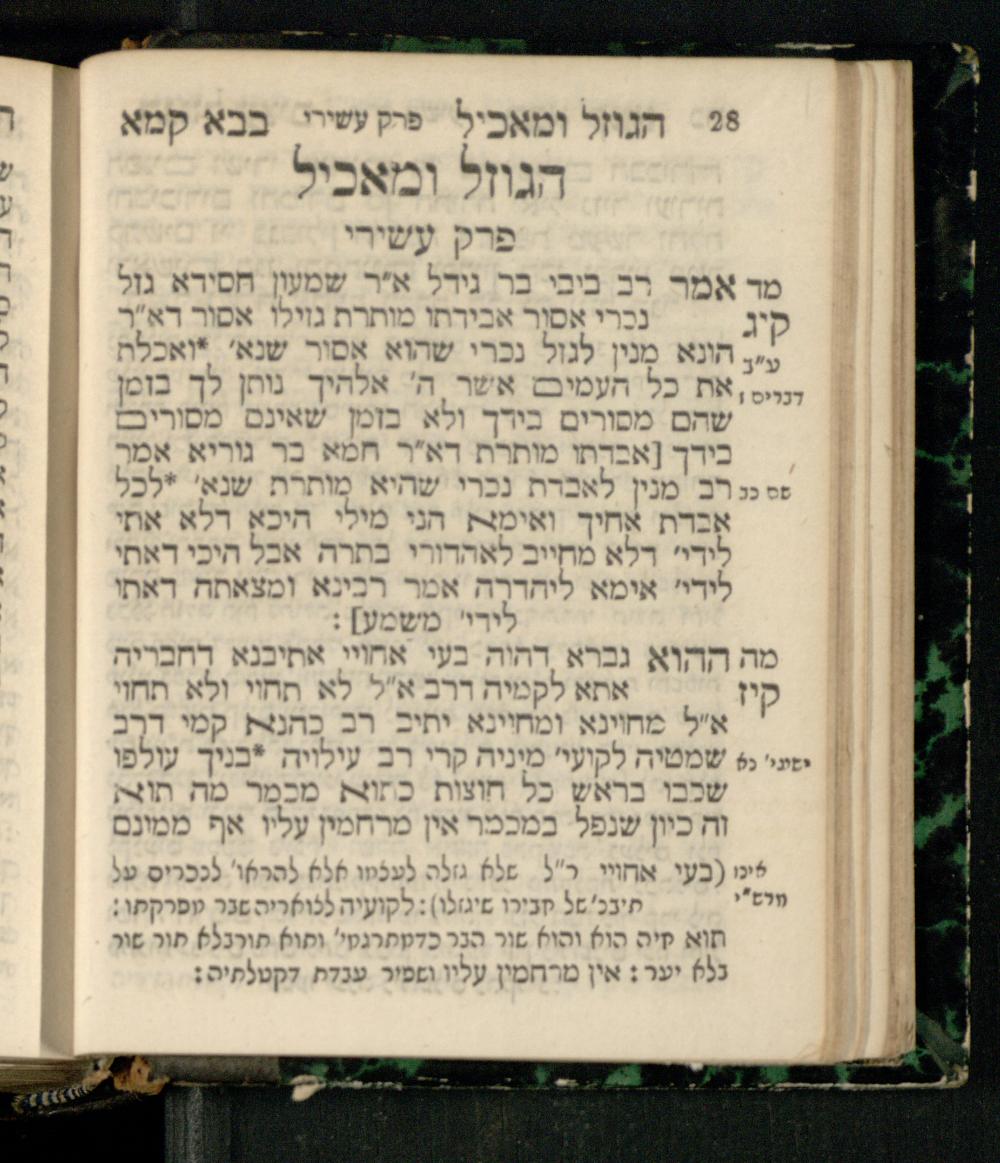 28 הגוזל ומאכיל פרק עשירי בבא קמא
הגוזל ומאכיל
פרק עשירי
מד אמר רב ביבי בר גידל א״ר שמעון חסידא גזל
קיג נכרי אסור אבידתו מותרת גזילו אסור דא״ר
ע״ב הונא מנין לגזל נכרי שהוא אסור שנא׳ *ואכלת
דברים ז את כל העמים אשר ה׳ אלהיך נותן לך בזמן
שהם מסורים בידך ולא בזמן שאינם מסורים
בידך [אבדתו מותרת דא״ר חמא בר גוריא אמר
שם כב רב מנין לאבדת נכרי שהיא מותרת שנא׳ *לכל
אבדת אחיך ואימא הני מילי היכא דלא אתי
לידי׳ דלא מחייב לאהדורי בתרה אבל היכי דאתי
לידי׳ אימא ליהדרה אמר רבינא ומצאתה דאתו
לידי׳ משמע] :
מה ההוא גברא דהוה בעי אחויי אתיבנא דחבריה
קיז אתא לקמיה דרב א״ל לא תחוי ולא תחוי
א״ל מחוינא ומחוינא יתיב רב כהנא קמי דרב
ישעי׳ נא שמטיה לקועי׳ מיניה קרי רב עילויה *בניך עולפו
שכבו בראש כל חוצות כתוא מכמר מה תוא
זה כיון שנפל במכמר אין מרחמין עליו אף ממונם
אינו (בעי אחויי ר״ל שלא גזלה לעצמו אלא להראו׳ לנכרים על
מרש״י תיבנ׳ של חבירו שיגזלו) : לקועיה לצואריה שבר מפרקתו :
תוא חיה הוא והוא שור הבר כדמתרגמי׳ ותוא תורבלא תור שור
בלא יער : אין מרחמין עליו ושפיר עבדת דקטלתיה :